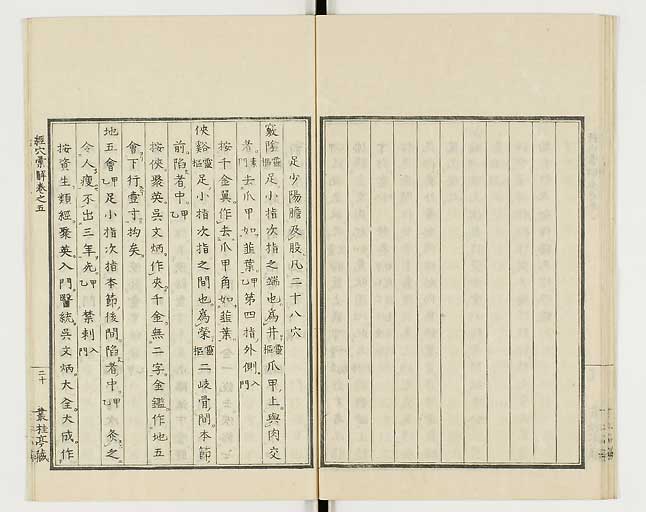 足少陽膽及股凡二十八穴
竅陰靈樞足小指次指之端也為井靈樞爪甲上與肉交
者去爪甲如韮葉甲乙第四指外側入門
按千金翼作去爪甲如韮葉
俠谿靈樞足小指次指之間也為滎靈樞二岐骨間本節
前陷者中甲乙
按俠聚英吳文炳作夾千金無二字金鑑作地五
會下行壹寸拘矣
地五會甲乙足小指次指本節後間陷者中甲乙灸之
令人瘦不出三年死甲乙禁刺入門
按資生類經聚英入門醫統吳文炳大全大成作
經穴彙解卷之五
二十
叢桂亭藏